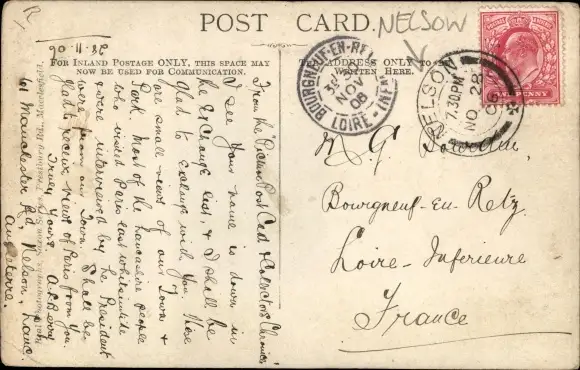 POST CARD.
NELSON
FOR INLAND POSTAGE ONLY, THIS SPACE MAY
NOW BE USED FOR COMMUNICATION.
THE ADDRESS ONLY TO BE
WRITTEN HERE.
28-11-06
From the "Picture Post Card & Collectors Chronicle"
I see your name is down in
the Exchange list, & I shall be
glad to Exchange with you. These
are small views of our Town &
Park. Most of the Lancashire people
who visited Paris last whitsuntide
& were interviewed by the President
were from our Town. Shall be
glad to receive views of Paris from you.
Truly yours
61 Manchester Rd, Nelson, Lanc.
Angleterre.
BOURGNEUF-EN-RETZ
NOV
06
LOIRE-INFRE
NELSON
7.30PM
NO 28
06
POSTAGE
ONE PENNY
M G.
Bourgneuf-en-Retz
Loire-Inferieure
France